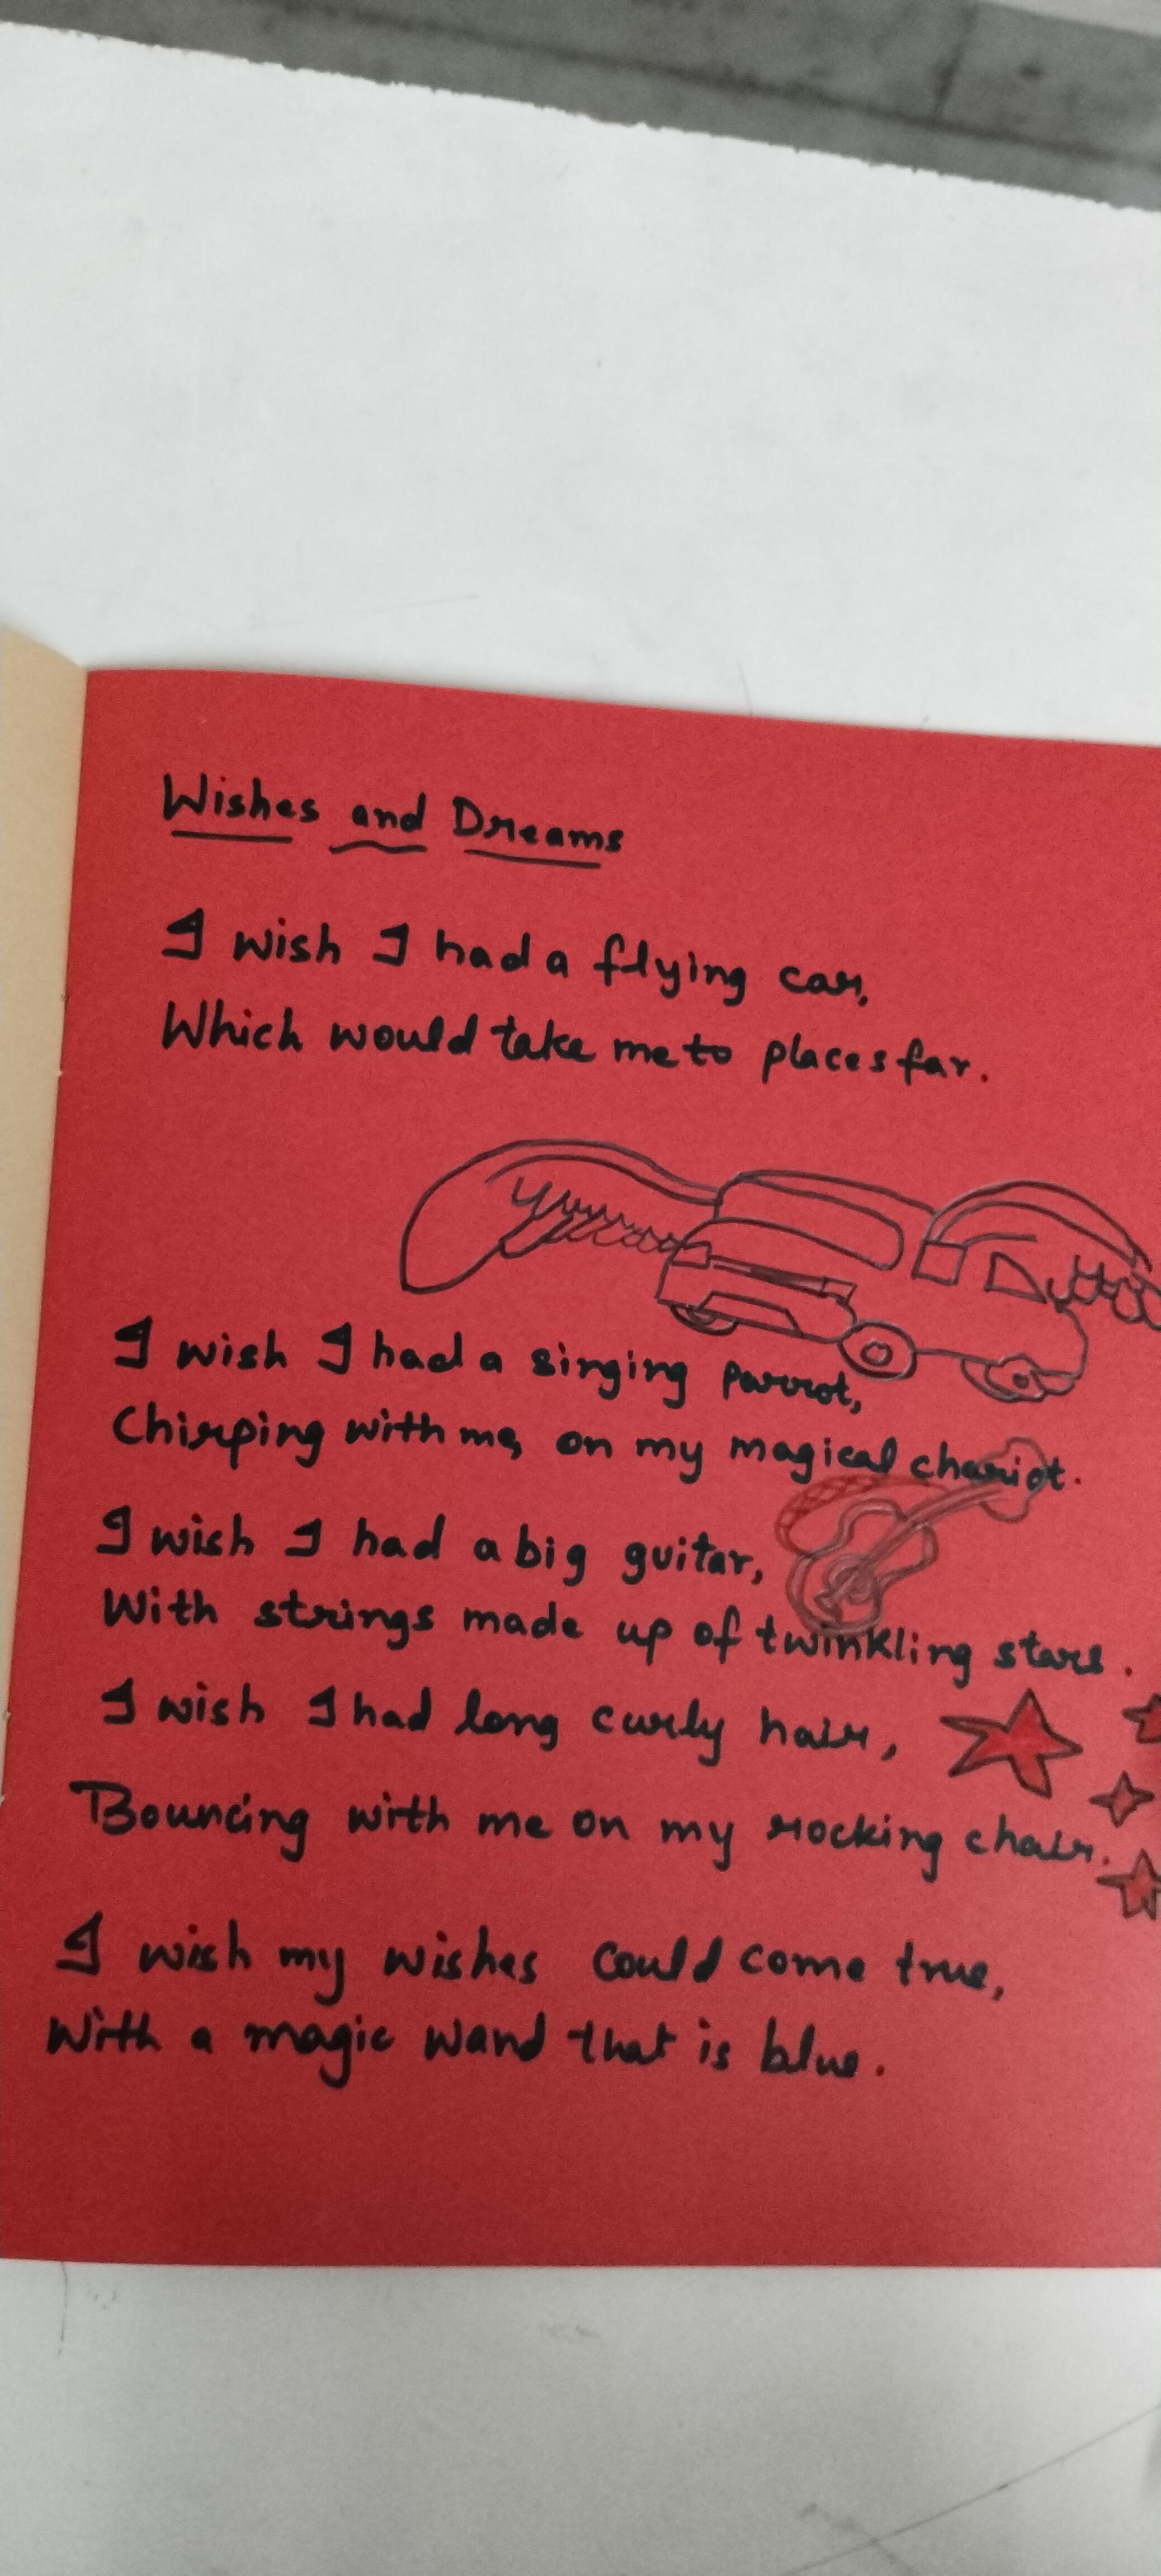 Wishes and Dreams
I wish I had a flying car,
Which would take me to places far.
I wish I had a singing parrot,
Chirping with me, on my magical chariot.
I wish I had a big guitar,
With strings made up of twinkling stars.
I wish I had long curly hair,
Bouncing with me on my rocking chair.
I wish my wishes could come true,
With a magic wand that is blue.